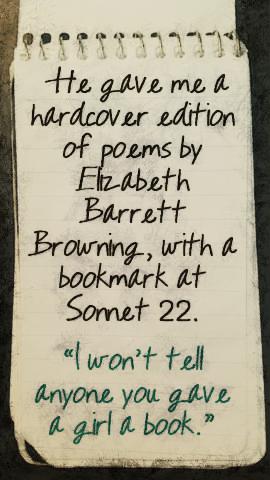 He gave me a
hardcover edition
of poems by
Elizabeth
Barrett
Browning, with a
bookmark at
Sonnet 22.
"I won't tell
anyone you gave
a girl a book."